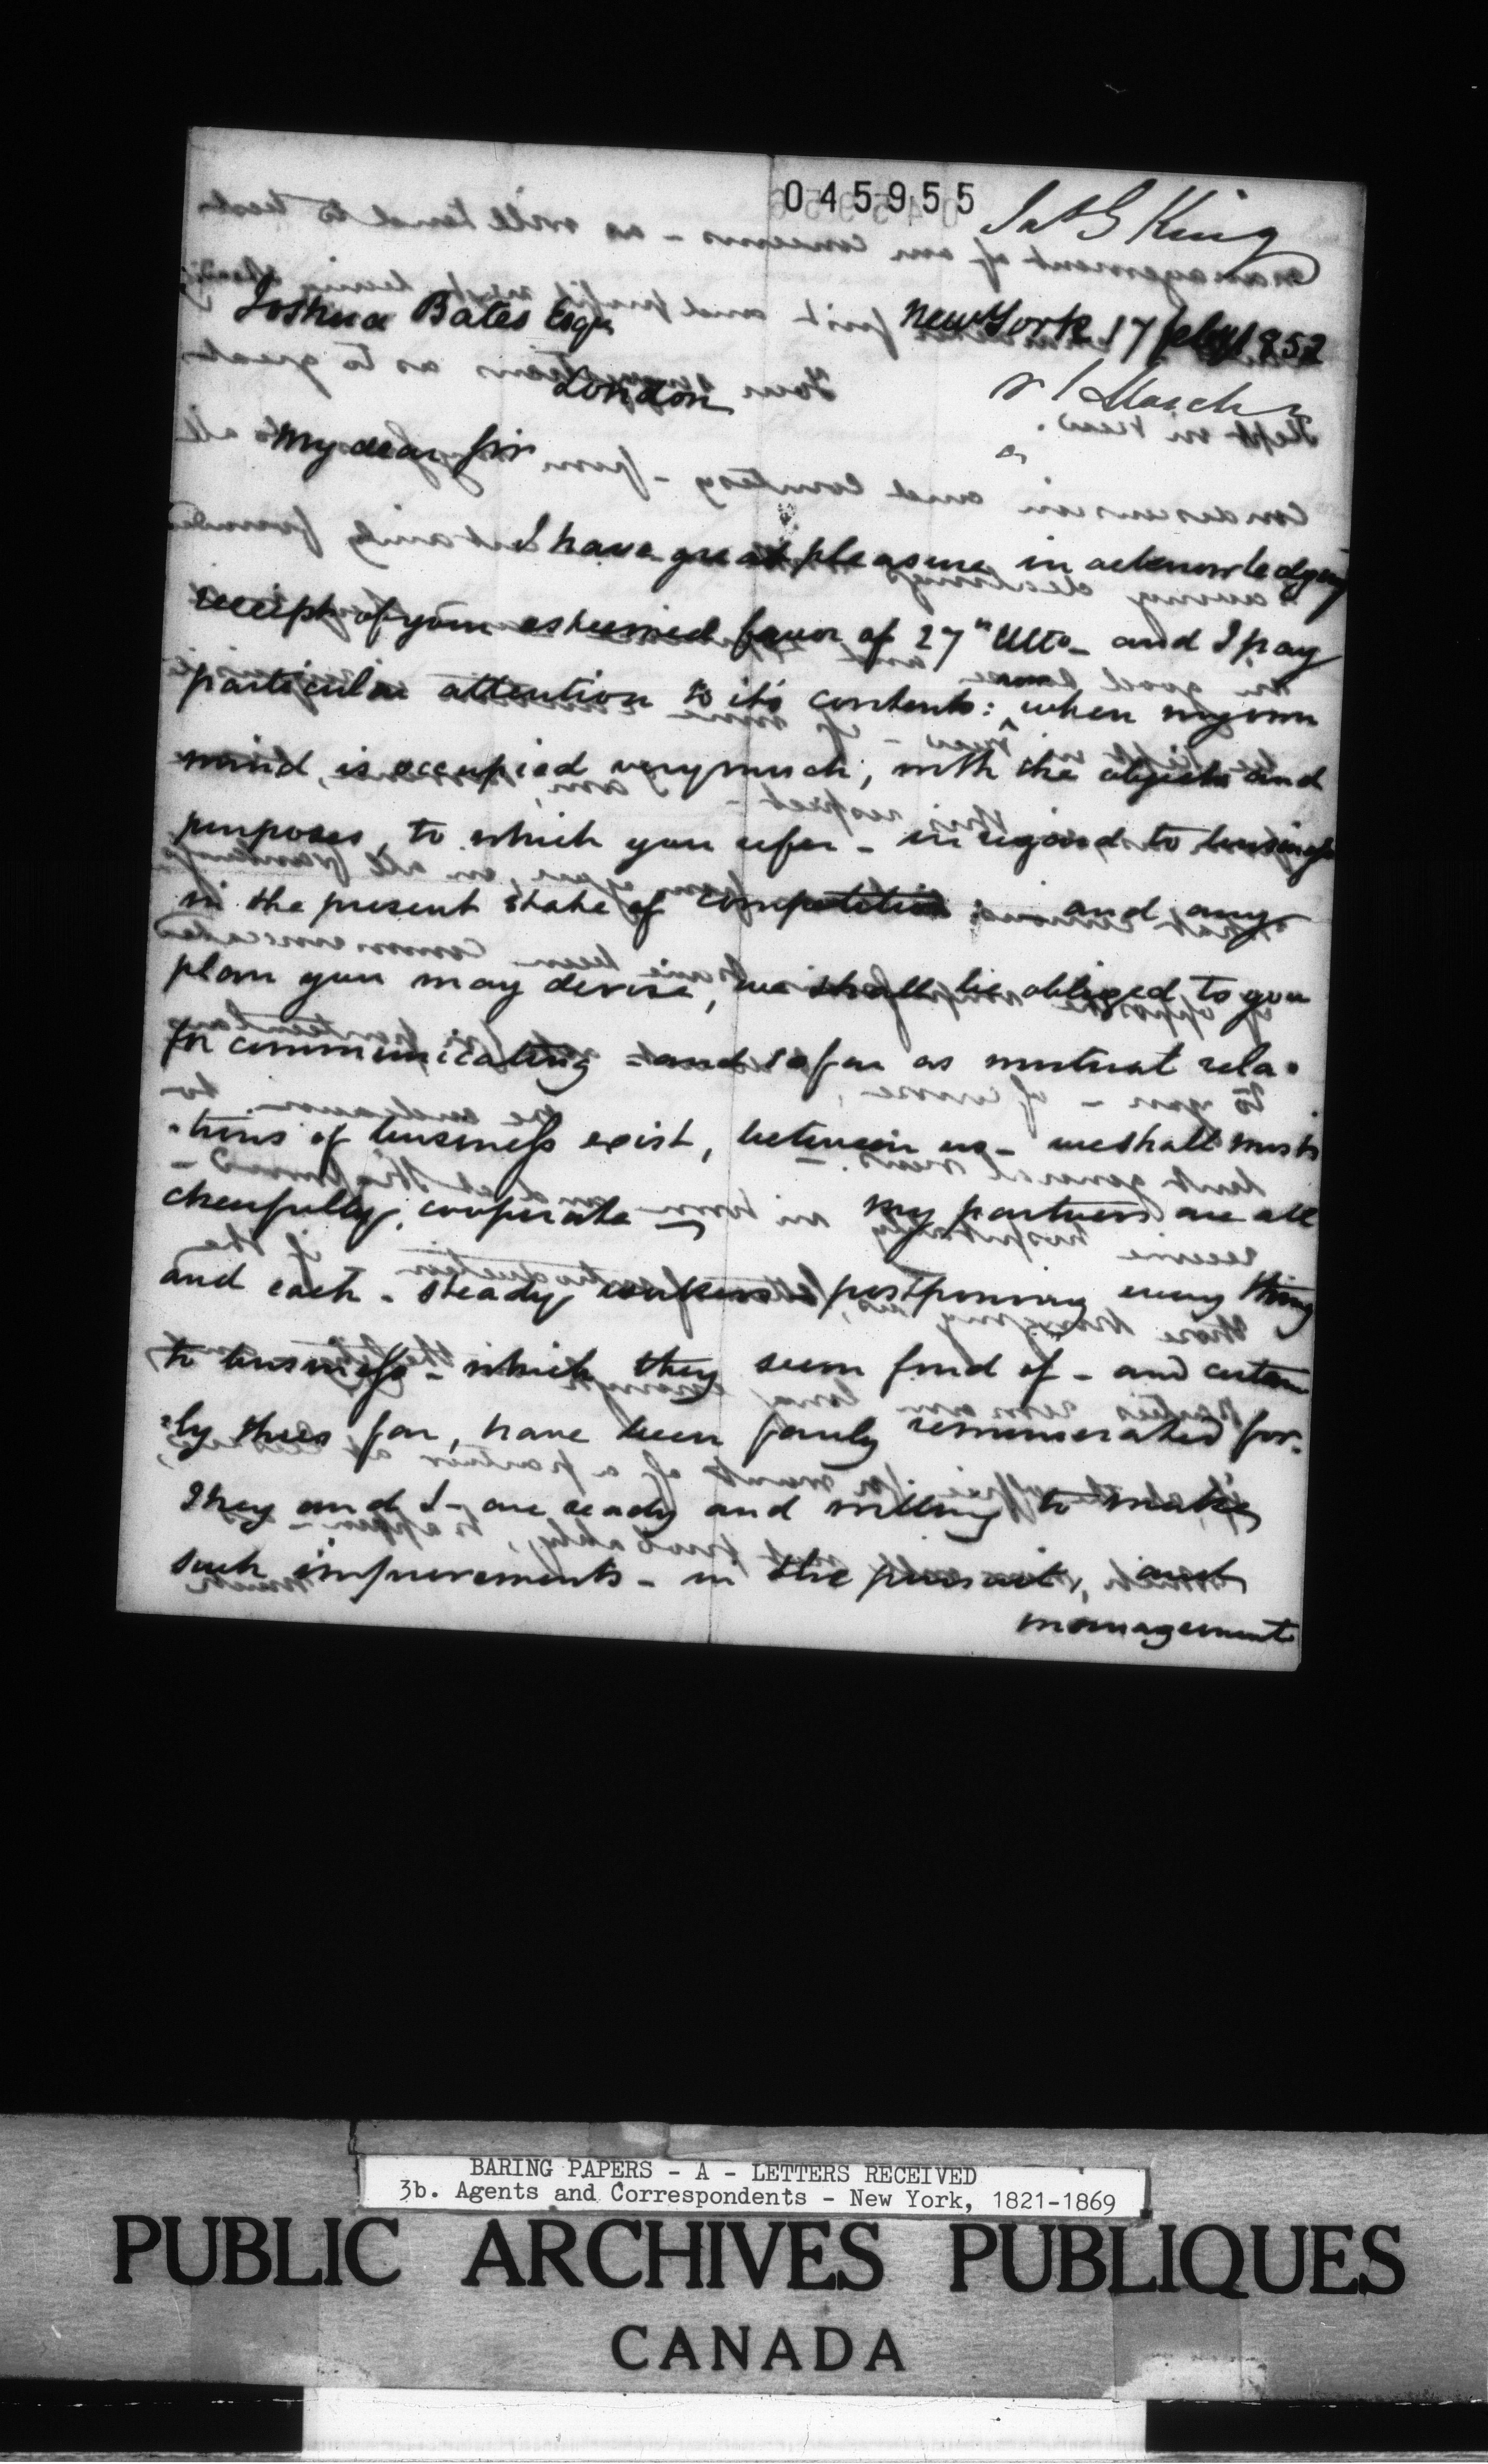 045955
Jas G King
New York 17 feby 1852
Joshua Bates Esqr
London
r 1 March
My dear Sir
I have great pleasure in acknowledging
receipt of your esteemed favor of 27th Ulto - and I pay
particular attention to its contents: when my own
mind, is occupied very much, with the objects and
purposes, to which you refer - in regard to business
in the present state of competition; and any
plan you may devise, we shall be obliged to you
for communicating - and so far as mutual rela-
-tions of business exist, between us - we shall most
cheerfully, cooperate - My partners are all
and each - steady workers - postponing every thing
to business - which they seem fond of - and certain
-ly thus far, have been fairly remunerated for.
They and I - are ready and willing to make
such improvements - in the pursuit, and
management
BARING PAPERS - A - LETTERS RECEIVED
3b. Agents and Correspondents - New York, 1821-1869
PUBLIC ARCHIVES PUBLIQUES
CANADA